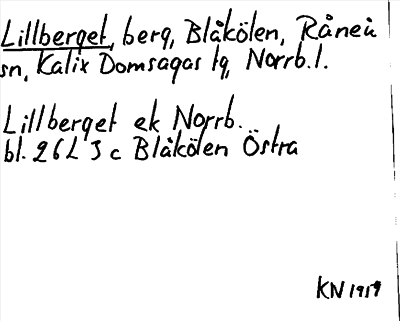 Lillberget, berg, Blåkölen, Råneå
sn, Kalix Domsagas tg, Norrb.l.
Lillberget ek Norrb.
bl. 26L 3 c Blåkölen Östra
KN 1959